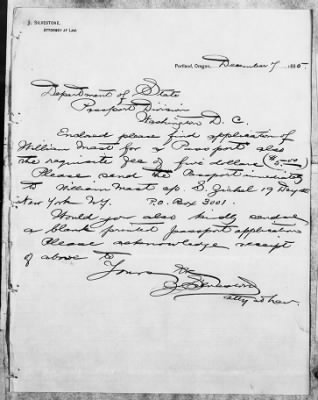 J. SILVESTONE,
ATTORNEY AT LAW.
Portland, Oregon, December 7 1885
Department of State
Passport Division
Washington D. C.
Enclosed please find application of
William Mast for a Passport also
the requisite fee of five dollars ($5.00
Please send the Passport immediately
to William Mast c/o S. 19 Dey st
New York N.Y. P.O. Box 3001.
Would you also kindly send me
a blank printed passport application
Please acknowledge receipt
of above to
Yours &c
J. Silvestone
Atty at Law.